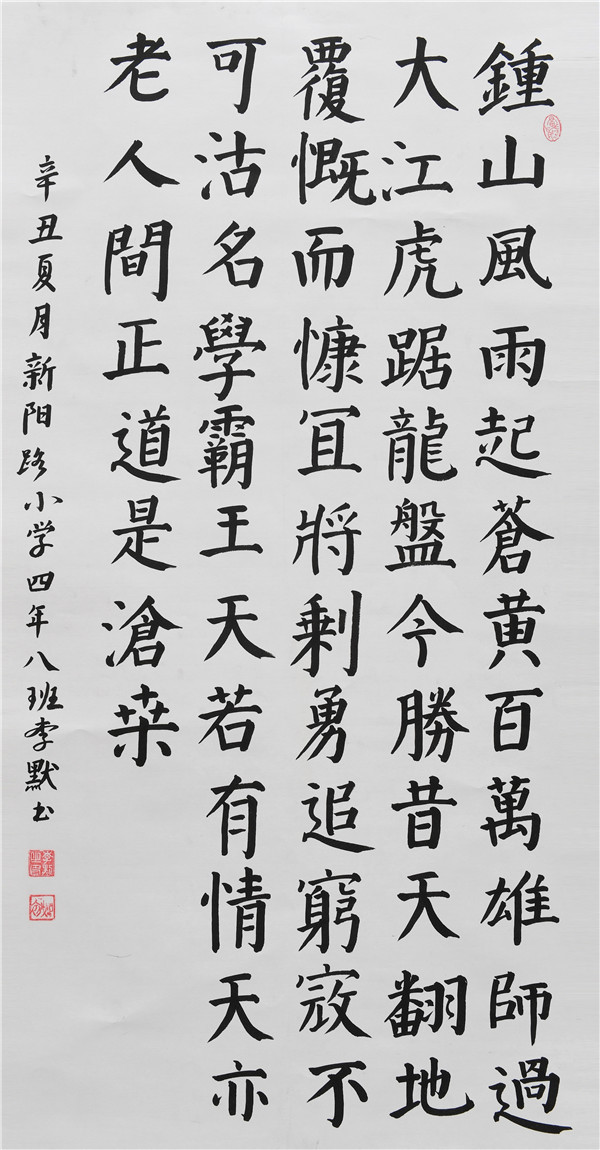 鍾山風雨起蒼黄百萬雄師過
大江虎踞龍盤今勝昔天翻地
覆慨而慷宜將剩勇追窮寇不
可沽名學霸王天若有情天亦
老人間正道是滄桒
辛丑夏月新阳路小学四年八班李默书